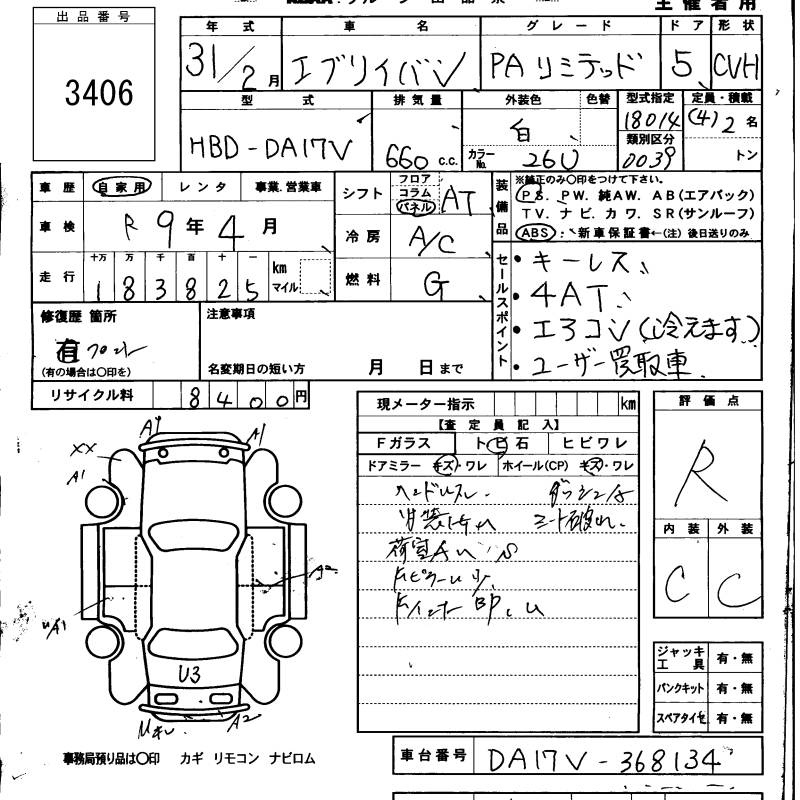 出品番号
3406
年式 車名 グレード ドア 形状
31/2月 エブリイバン PAリミテッド 5 CVH
型式 排気量 外装色 色替 型式指定 定員・積載
HBD-DA17V 660 c.c. 白 カラーNo. 26U 18014 (4)2名
類別区分
0039 トン
車歴 自家用 レンタ 事業.営業車
車検 R9年4月
走行 十万 万 千 百 十 一 km マイル
183825
シフト フロア コラム パネル AT
冷房 A/C
燃料 G
装備品 ※純正のみ〇印をつけて下さい。
PS. PW. 純AW. AB(エアバック)
TV. ナビ. カワ. SR(サンルーフ)
ABS: 新車保証書←(注) 後日送りのみ
セールスポイント
・キーレス
・4AT
・エアコン(冷えます)
・ユーザー買取車
修復歴 箇所
有
(有の場合は〇印を)
注意事項
名変期日の短い方 月 日まで
リサイクル料 8400円
現メーター指示 km
【査定員記入】
Fガラス トビ石 ヒビワレ
ドアミラー キズ・ワレ ホイール(CP) キズ・ワレ
評価点
R
内装 外装
C C
A1 A1
XX
A1
A2
A1
U3
A2
ジャッキ工具 有・無
パンクキット 有・無
スペアタイヤ 有・無
事務局預り品は〇印 カギ リモコン ナビロム
車台番号 DA17V-368134